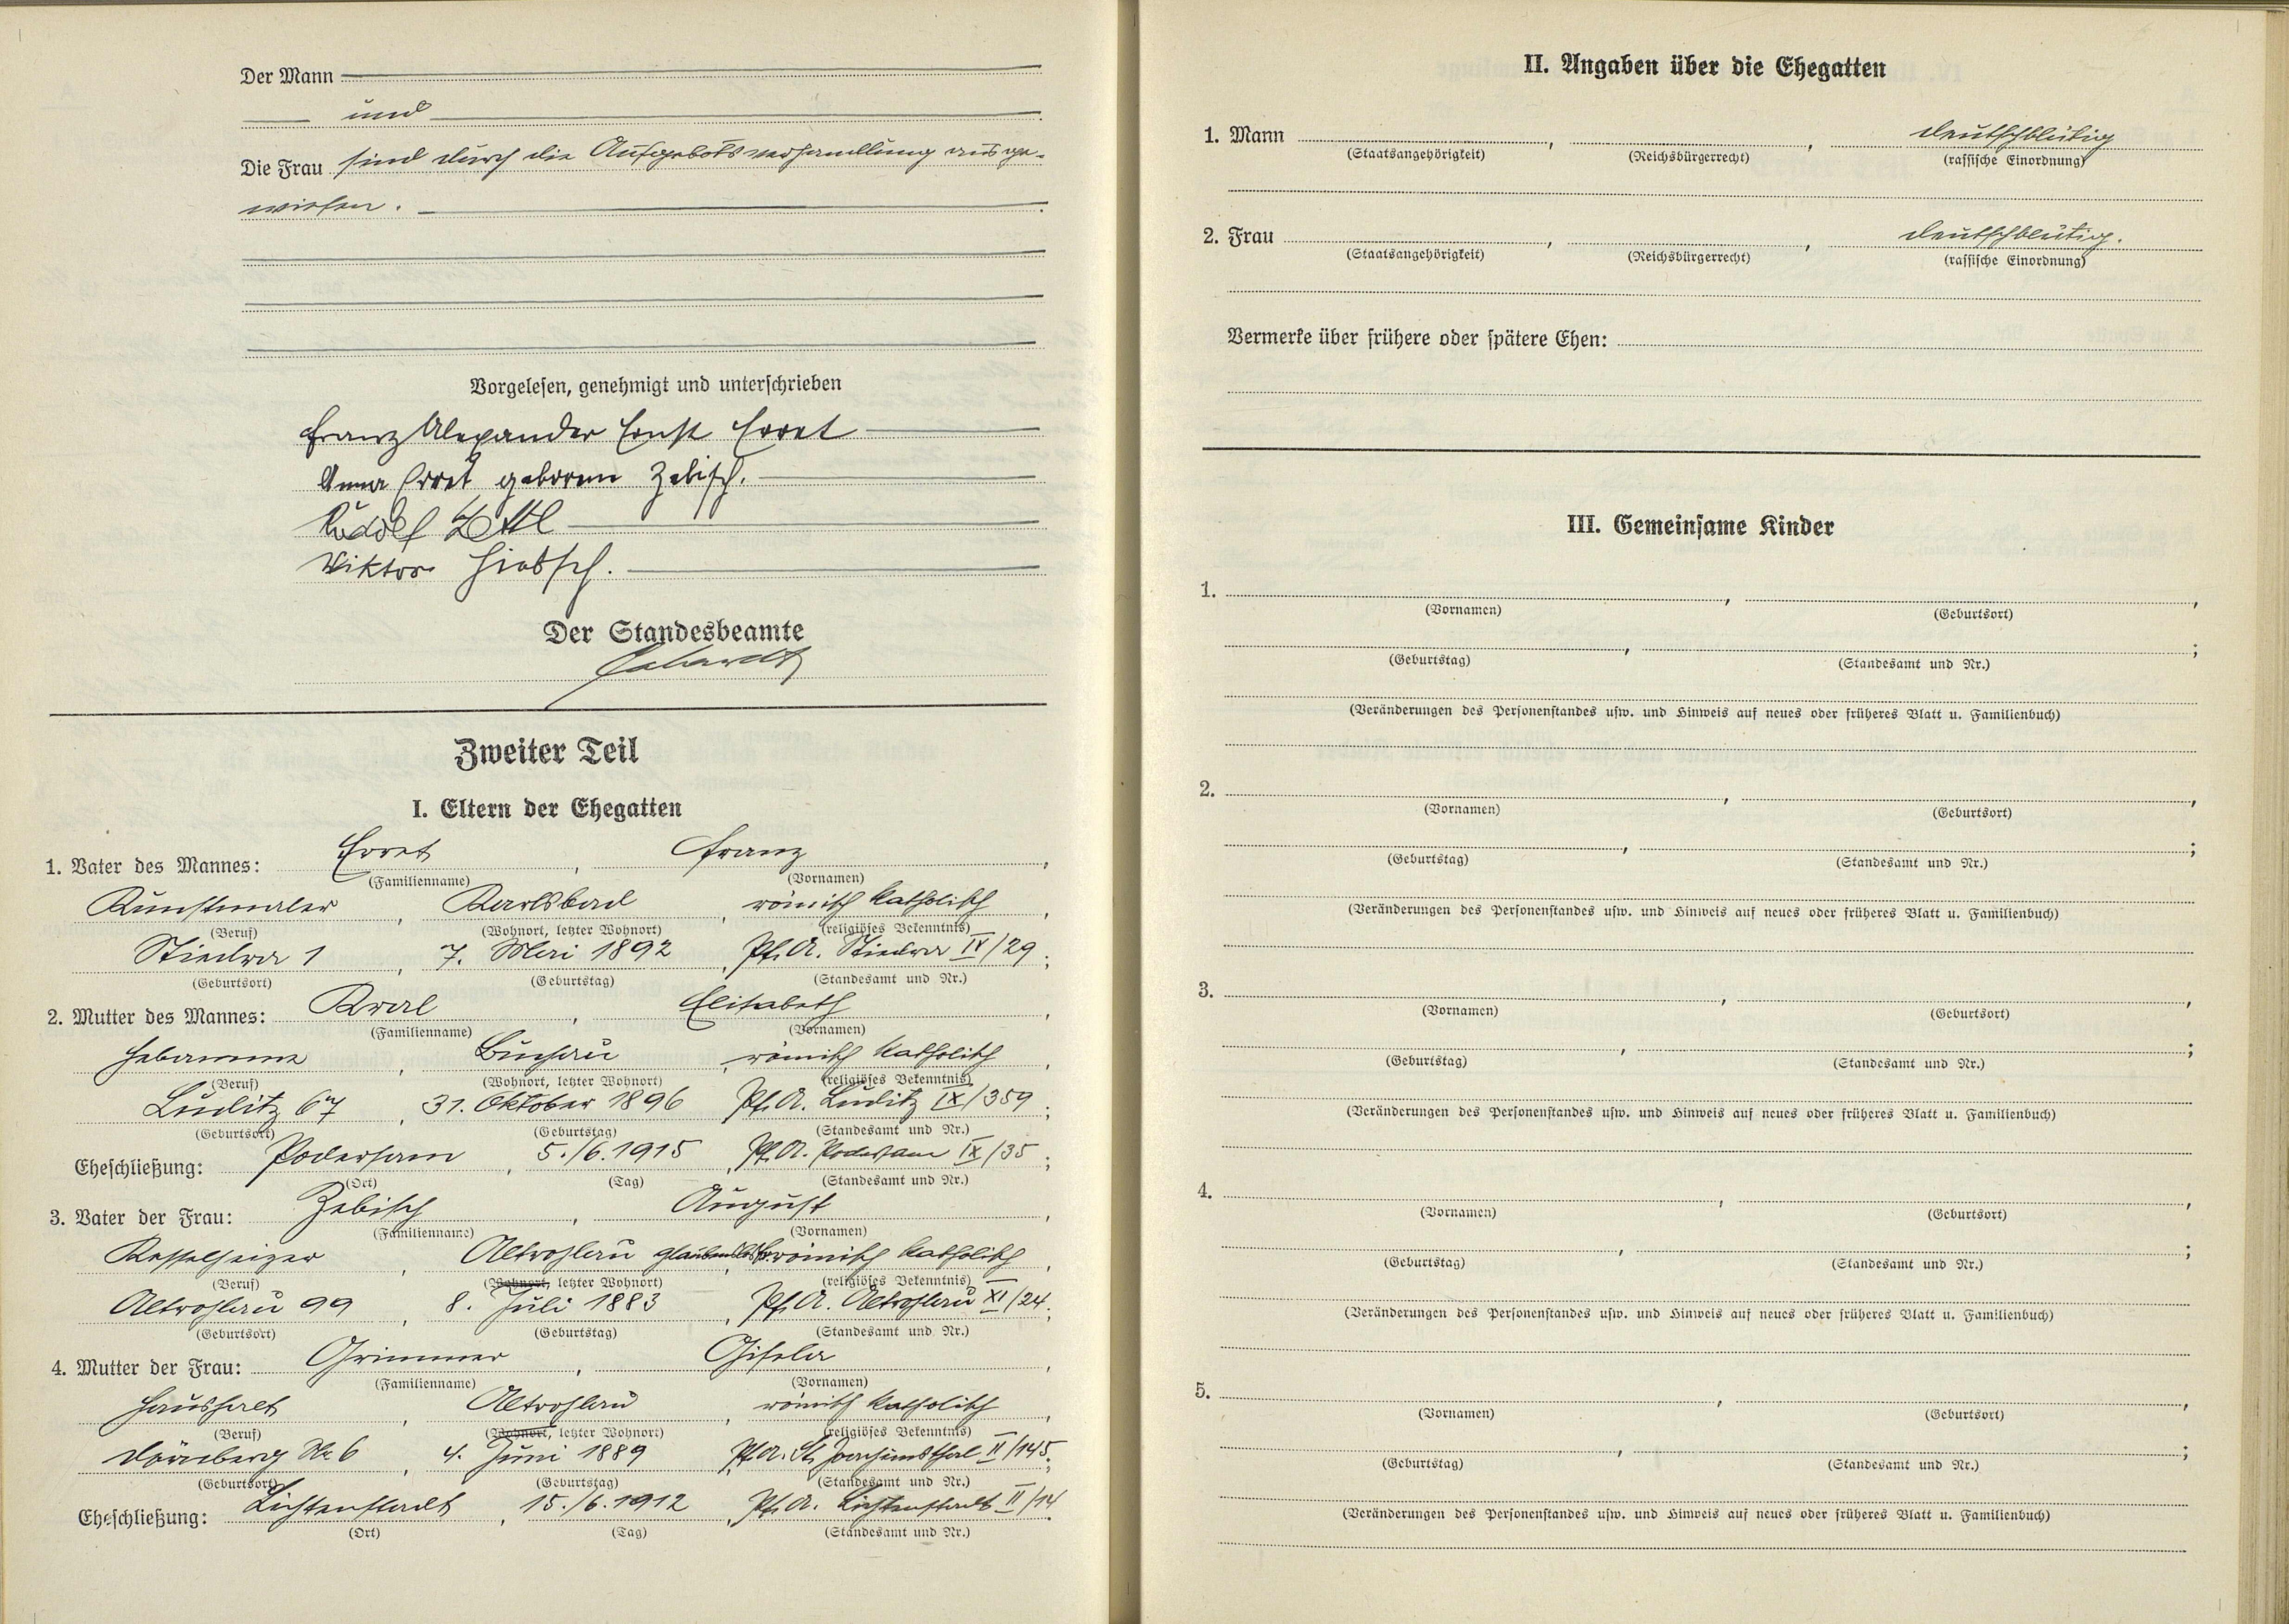 Der Mann
und
Die Frau sind durch die Aufgebotsverhandlung ausge-
wiesen.
Vorgelesen, genehmigt und unterschrieben
Franz Alexander Ernst Erret
Anna Erret geboren Zebisch.
Rudolf
Viktor Hiebsch.
Der Standesbeamte
Zweiter Teil
I. Eltern der Ehegatten
1. Vater des Mannes: Erret, Franz,
(Familienname) (Vornamen)
Kunstmaler, Karlsbad, römisch katholisch,
(Beruf) (Wohnort, letzter Wohnort) (religiöses Bekenntnis)
Stiedra 1, 7. Mai 1892, Pf.A. Stiedra IV/29;
(Geburtsort) (Geburtstag) (Standesamt und Nr.)
2. Mutter des Mannes: Kral, Elisabeth,
(Familienname) (Vornamen)
Hebamme, Buchau, römisch katholisch,
(Beruf) (Wohnort, letzter Wohnort) (religiöses Bekenntnis)
Luditz 67, 31. Oktober 1896, Pf.A. Luditz IX/359;
(Geburtsort) (Geburtstag) (Standesamt und Nr.)
Eheschließung: Podersam, 5./6.1915, Pf.A. Podersam IX/35;
(Ort) (Tag) (Standesamt und Nr.)
3. Vater der Frau: Zebisch, August,
(Familienname) (Vornamen)
Kesselheizer, Altrohlau, glaubenslos fr. römisch katholisch,
(Beruf) (Wohnort, letzter Wohnort) (religiöses Bekenntnis)
Altrohlau 99, 8. Juli 1883, Pf.A. Altrohlau XI/24;
(Geburtsort) (Geburtstag) (Standesamt und Nr.)
4. Mutter der Frau: Grimmer, Gisela,
(Familienname) (Vornamen)
Haushalt, Altrohlau, römisch katholisch,
(Beruf) (Wohnort, letzter Wohnort) (religiöses Bekenntnis)
Dürnberg Nr. 6, 4. Juni 1889, Pf.A. St. Joachimsthal II/145;
(Geburtsort) (Geburtstag) (Standesamt und Nr.)
Eheschließung: Lichtenstadt, 15./6.1912, Pf.A. Lichtenstadt II/14.
(Ort) (Tag) (Standesamt und Nr.)
II. Angaben über die Ehegatten
1. Mann , , deutschblütig
(Staatsangehörigkeit) (Reichsbürgerrecht) (rassische Einordnung)
2. Frau , , deutschblütig.
(Staatsangehörigkeit) (Reichsbürgerrecht) (rassische Einordnung)
Vermerke über frühere oder spätere Ehen:
III. Gemeinsame Kinder
1. , ,
(Vornamen) (Geburtsort)
, ;
(Geburtstag) (Standesamt und Nr.)
(Veränderungen des Personenstandes usw. und Hinweis auf neues oder früheres Blatt u. Familienbuch)
2. , ,
(Vornamen) (Geburtsort)
, ;
(Geburtstag) (Standesamt und Nr.)
(Veränderungen des Personenstandes usw. und Hinweis auf neues oder früheres Blatt u. Familienbuch)
3. , ,
(Vornamen) (Geburtsort)
, ;
(Geburtstag) (Standesamt und Nr.)
(Veränderungen des Personenstandes usw. und Hinweis auf neues oder früheres Blatt u. Familienbuch)
4. , ,
(Vornamen) (Geburtsort)
, ;
(Geburtstag) (Standesamt und Nr.)
(Veränderungen des Personenstandes usw. und Hinweis auf neues oder früheres Blatt u. Familienbuch)
5. , ,
(Vornamen) (Geburtsort)
, ;
(Geburtstag) (Standesamt und Nr.)
(Veränderungen des Personenstandes usw. und Hinweis auf neues oder früheres Blatt u. Familienbuch)